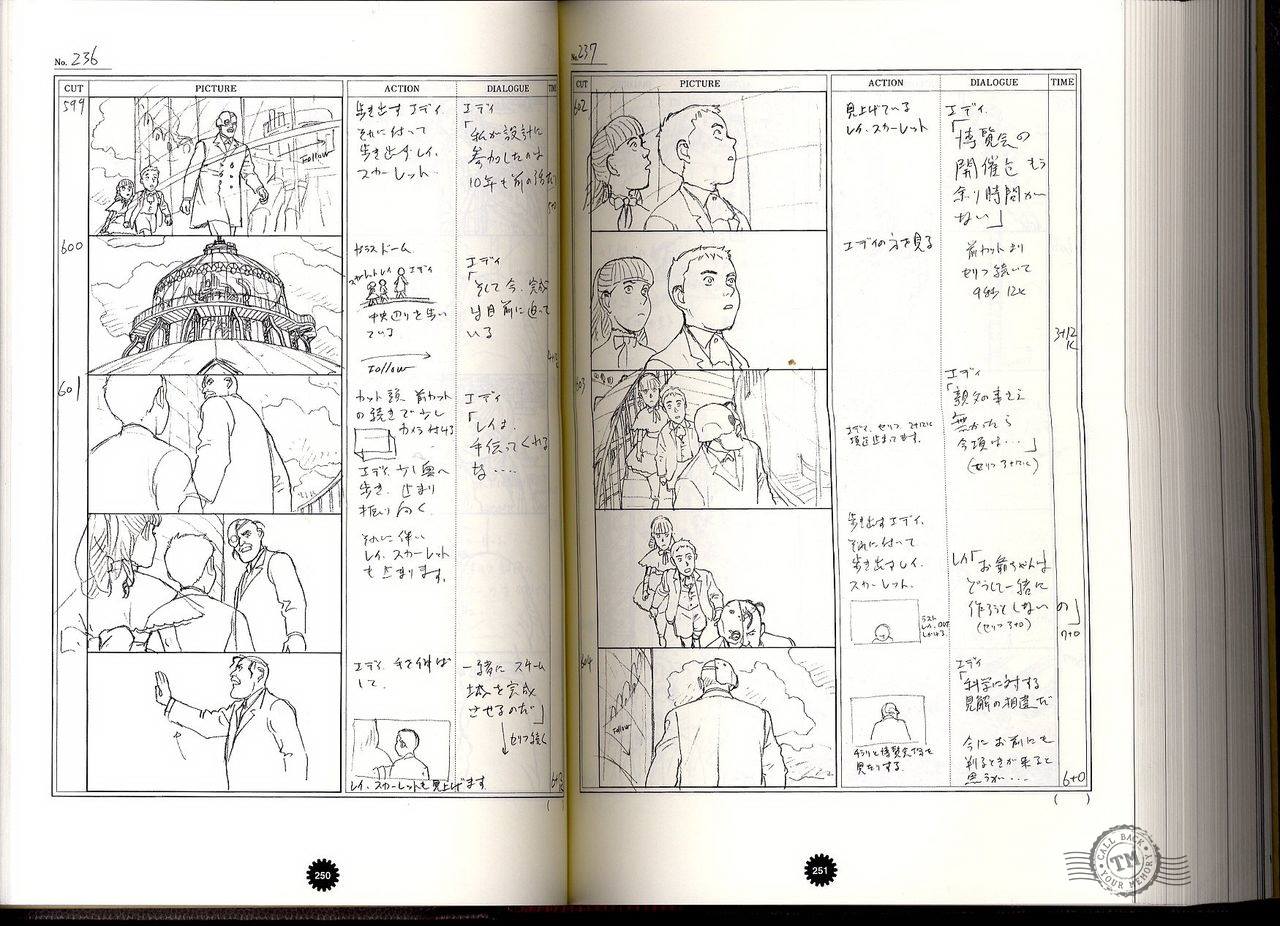 No. 236
CUT
PICTURE
ACTION
DIALOGUE
599
Follow
歩き出すエディ.
それに付いて
歩き出すレイ.
スカーレット.
エディ
「私が設計に
参加したのは
10年も前の
600
ガラスドーム
スカーレット レイ エディ
中央辺りを歩い
ている
Follow
エディ
「そして今、完成
は目前に迫って
いる
601
カット頭 前カット
の続きで少し
カメラ付ける
エディ少し奥へ
歩き、止まり
振り向く
エディ
「レイよ.
手伝ってくれる
な....
それに伴い
レイ、スカーレット
も止まります.
エディ 手を伸ば
して.
レイ、スカーレットを見上げます.
一緒にスチーム
城を完成
させるのだ」
セリフ続く
250
No. 237
CUT
PICTURE
ACTION
DIALOGUE
TIME
602
見上げている
レイ.スカーレット
エディ.
「博覧会の
開催まで もう
余り時間が
ない」
エディの方を見る
前カットより
セリフ続いて
9秒12K
3+12
K
603
エディ
「親父の事さえ
無かったら
今頃は...」
(セリフ 3+12K)
歩き出すエディ.
それに付いて
歩き出すレイ.
スカーレット.
レイ「お爺ちゃんは
どうして一緒に
作ろうとしない の」
(セリフ 3+0)
7+0
604
Follow
チラリと博覧会場を
見たりする.
エディ
「科学に対する
見解の相違だ
今にお前にも
判るときが来ると
思うが...
6+0
( )
251
CALL BACK
TM
YOUR MEMORY